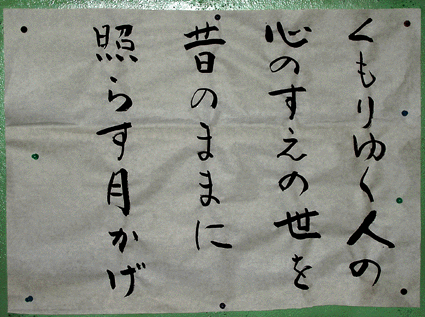 くもりゆく人の
心のすえの世を
昔のままに
照らす月かげ